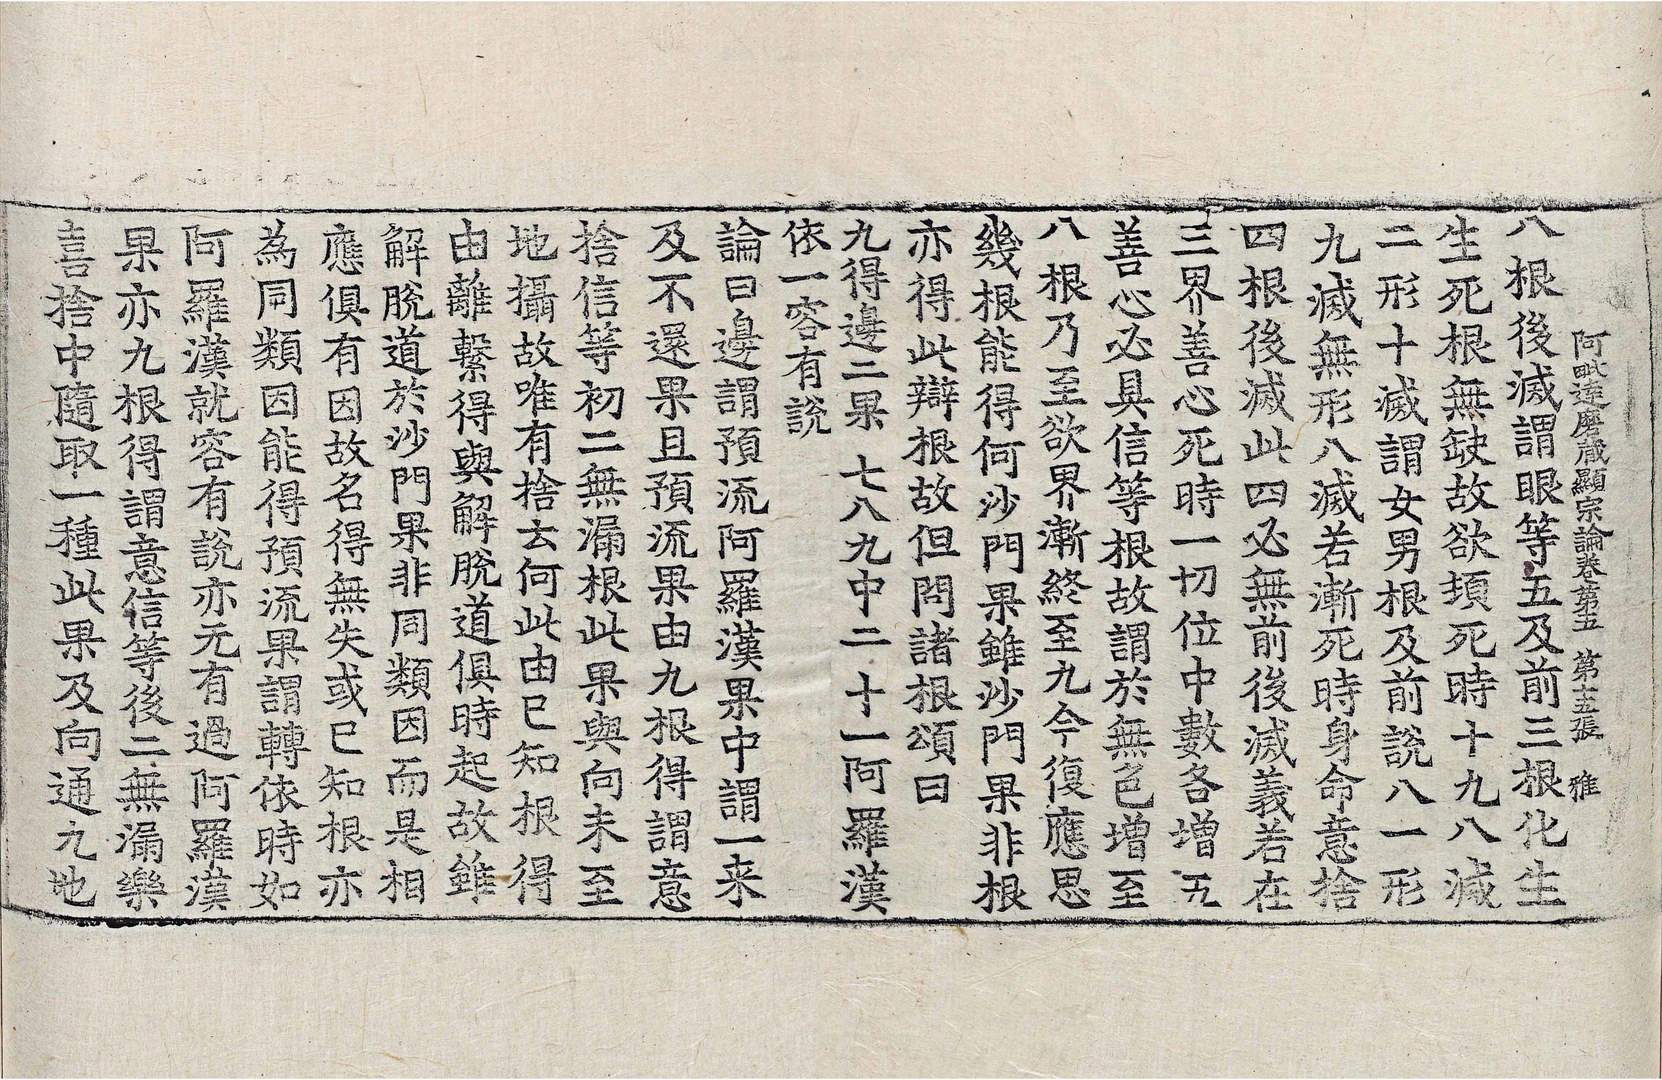 阿毗達磨藏顯宗論卷第五　第十五張　雅
八根後滅謂眼等五及前三根化生
生死根無缺故欲頃死時十九八滅
二形十滅謂女男根及前說八一形
九滅無形八滅若漸死時身命意捨
四根後滅此四必無前後滅義若在
三界善心死時一切位中數各增五
善心必具信等根故謂於無色增至
八根乃至欲界漸終至九今復應思
幾根能得何沙門果雖沙門果非根
亦得此辯根故但問諸根頌曰
九得邊二果　七八九中二　十一阿羅漢
依一容有說
論曰邊謂預流阿羅漢果中謂一来
及不還果且預流果由九根得謂意
捨信等初二無漏根此果與向未至
地攝故唯有捨去何此由已知根得
由離繫得與解脫道俱時起故雖
解脫道於沙門果非同類因而是相
應俱有因故名得無失或已知根亦
為同類因能得預流果謂轉依時如
阿羅漢就容有說亦无有過阿羅漢
果亦九根得謂意信等後二無漏樂
喜捨中隨取一種此果及向通九地